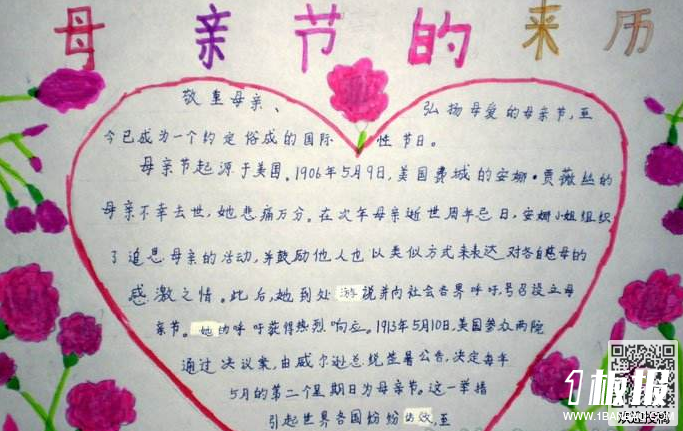 母亲节的来历
敬重母亲、弘扬母爱的母亲节，至
今已成为一个约定俗成的国际性节日。
母亲节起源于美国。1906年5月9日，美国费城的安娜·贾薇丝的
母亲不幸去世，她悲痛万分。在次年母亲逝世周年忌日，安娜小姐组织
了追思母亲的活动，并鼓励他人也以类似方式来表达对各自慈母的
感激之情。此后，她到处游说并向社会各界呼吁，号召设立母
亲节。她的呼吁获得热烈响应。1913年5月10日，美国参众两院
通过决议案，由威尔逊总统签署公告，决定每年
5月的第二个星期日为母亲节。这一举措
引起世界各国纷纷仿效，至
1板报
WWW.1BANBAO.COM
欢迎投稿